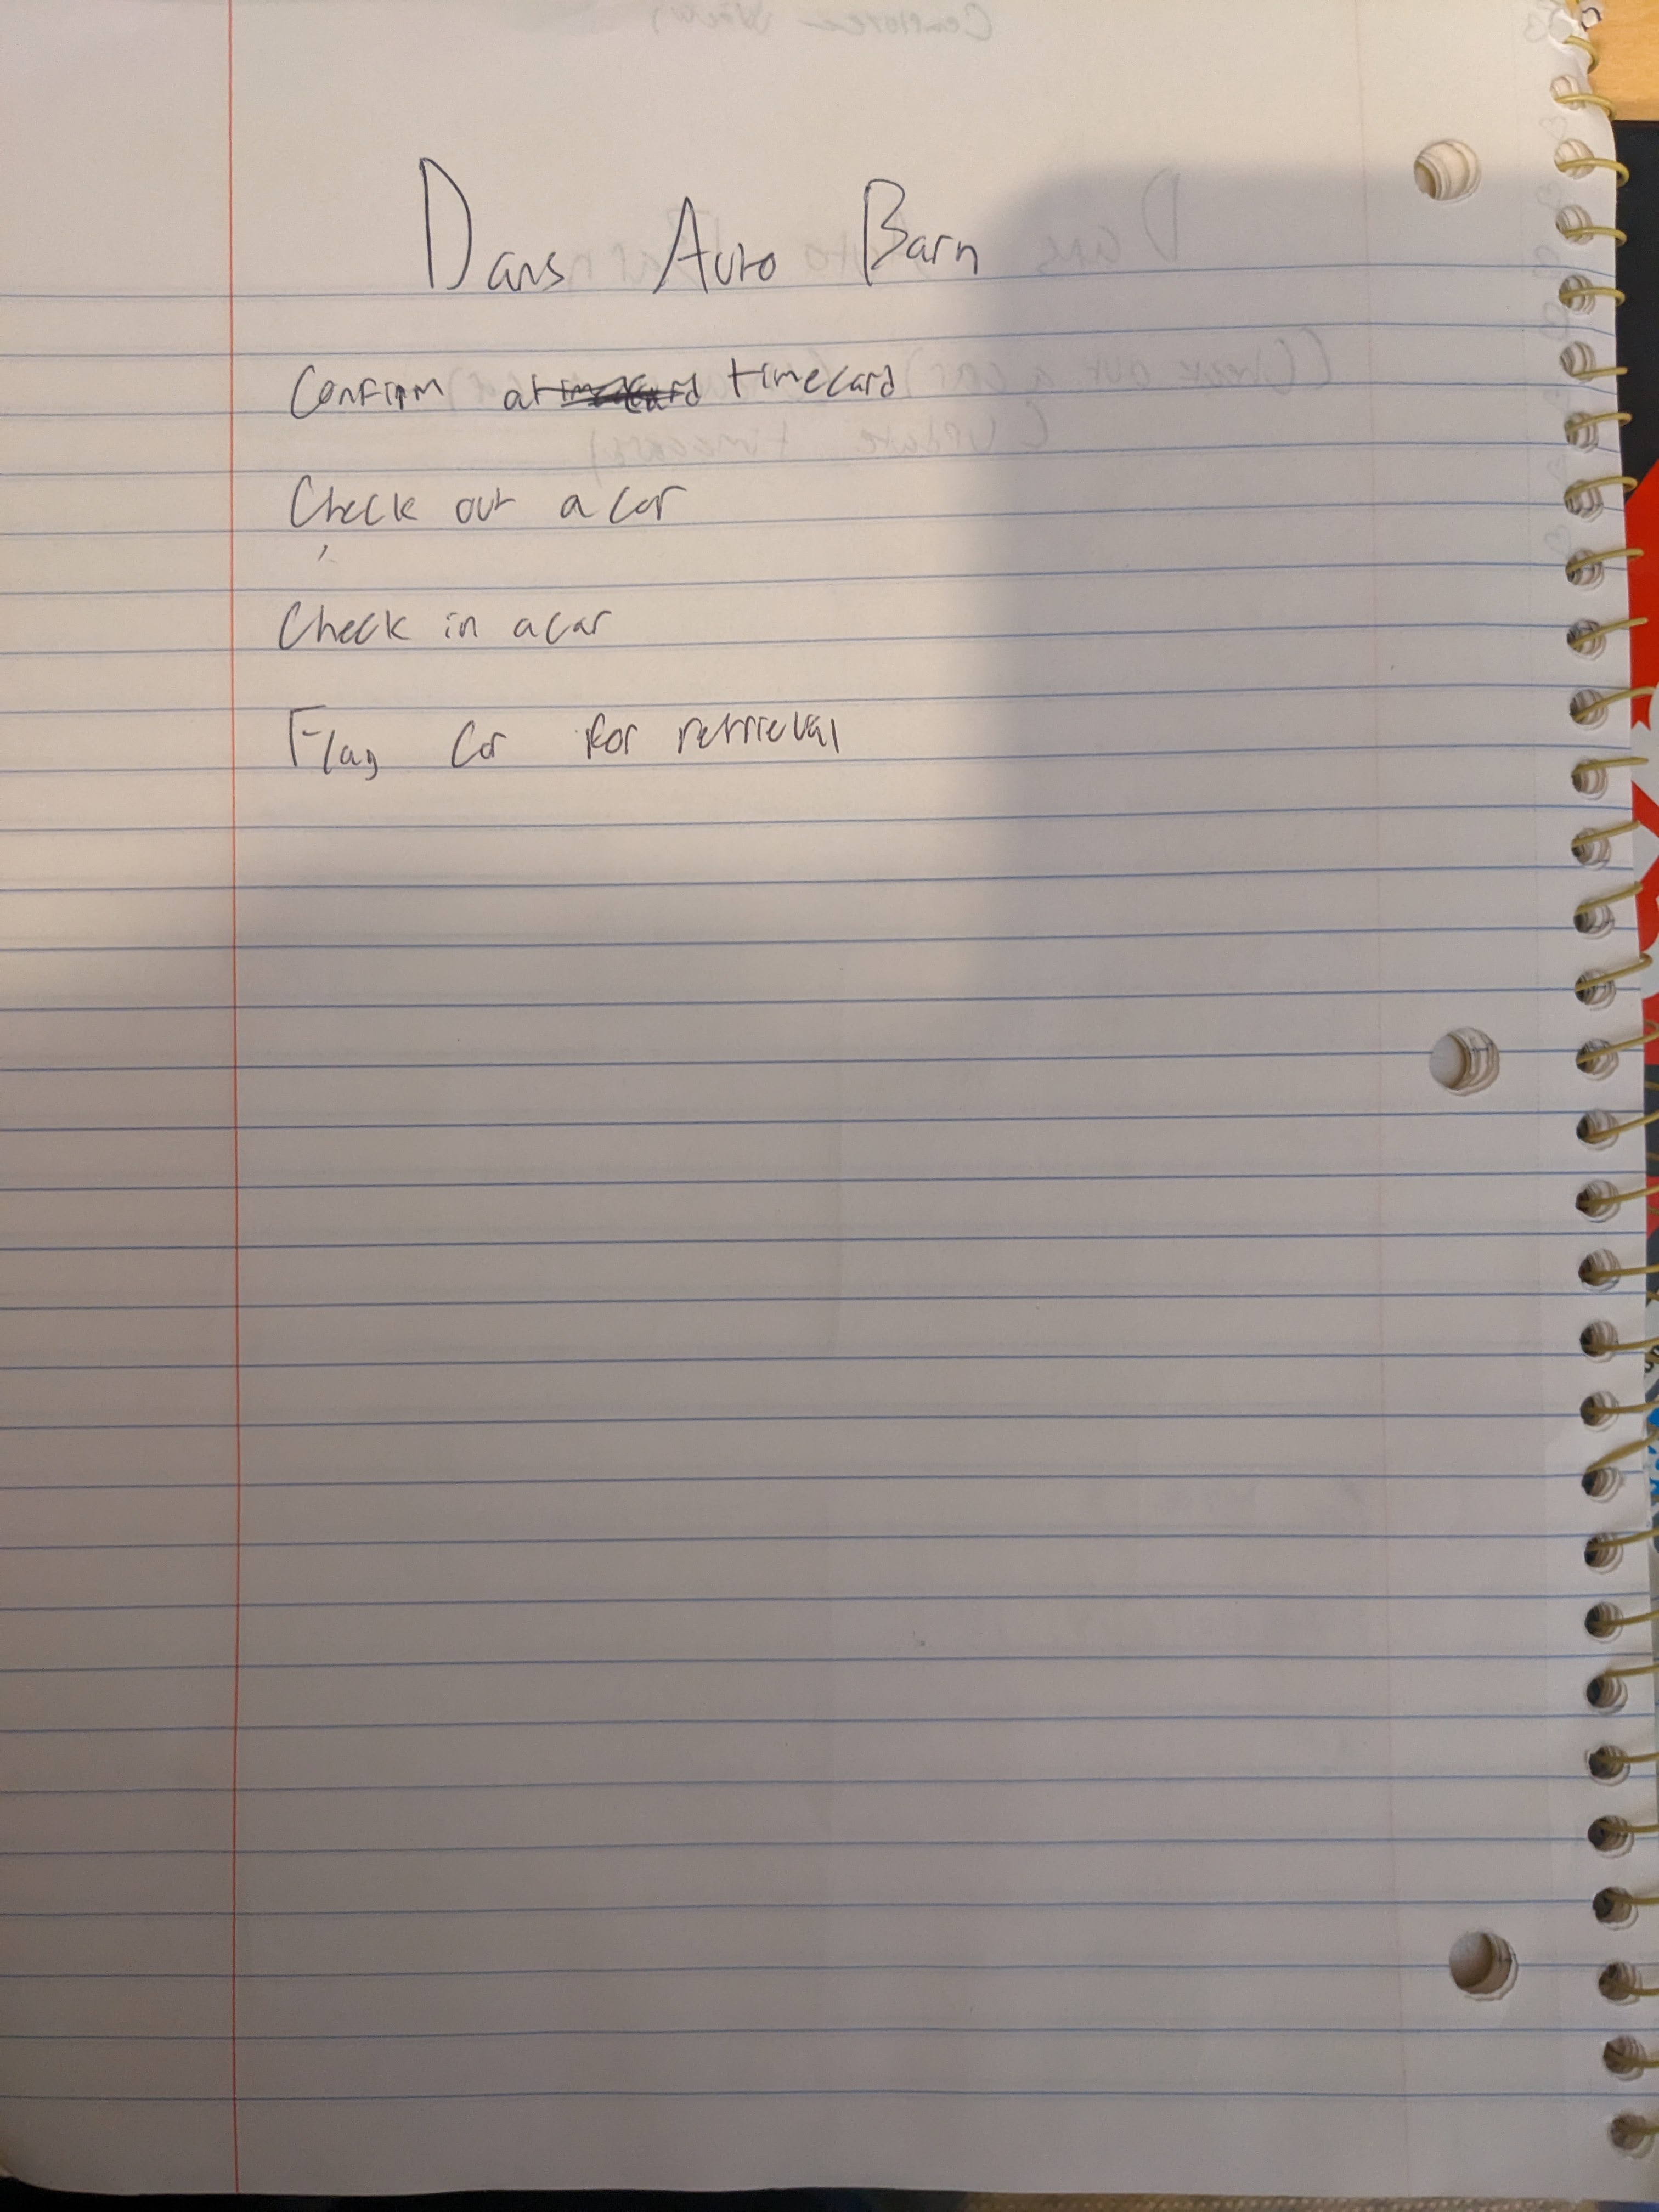 Dans Auto Barn
Confirm a timecard timecard
Check out a car
Check in a car
Flag Car for retrieval